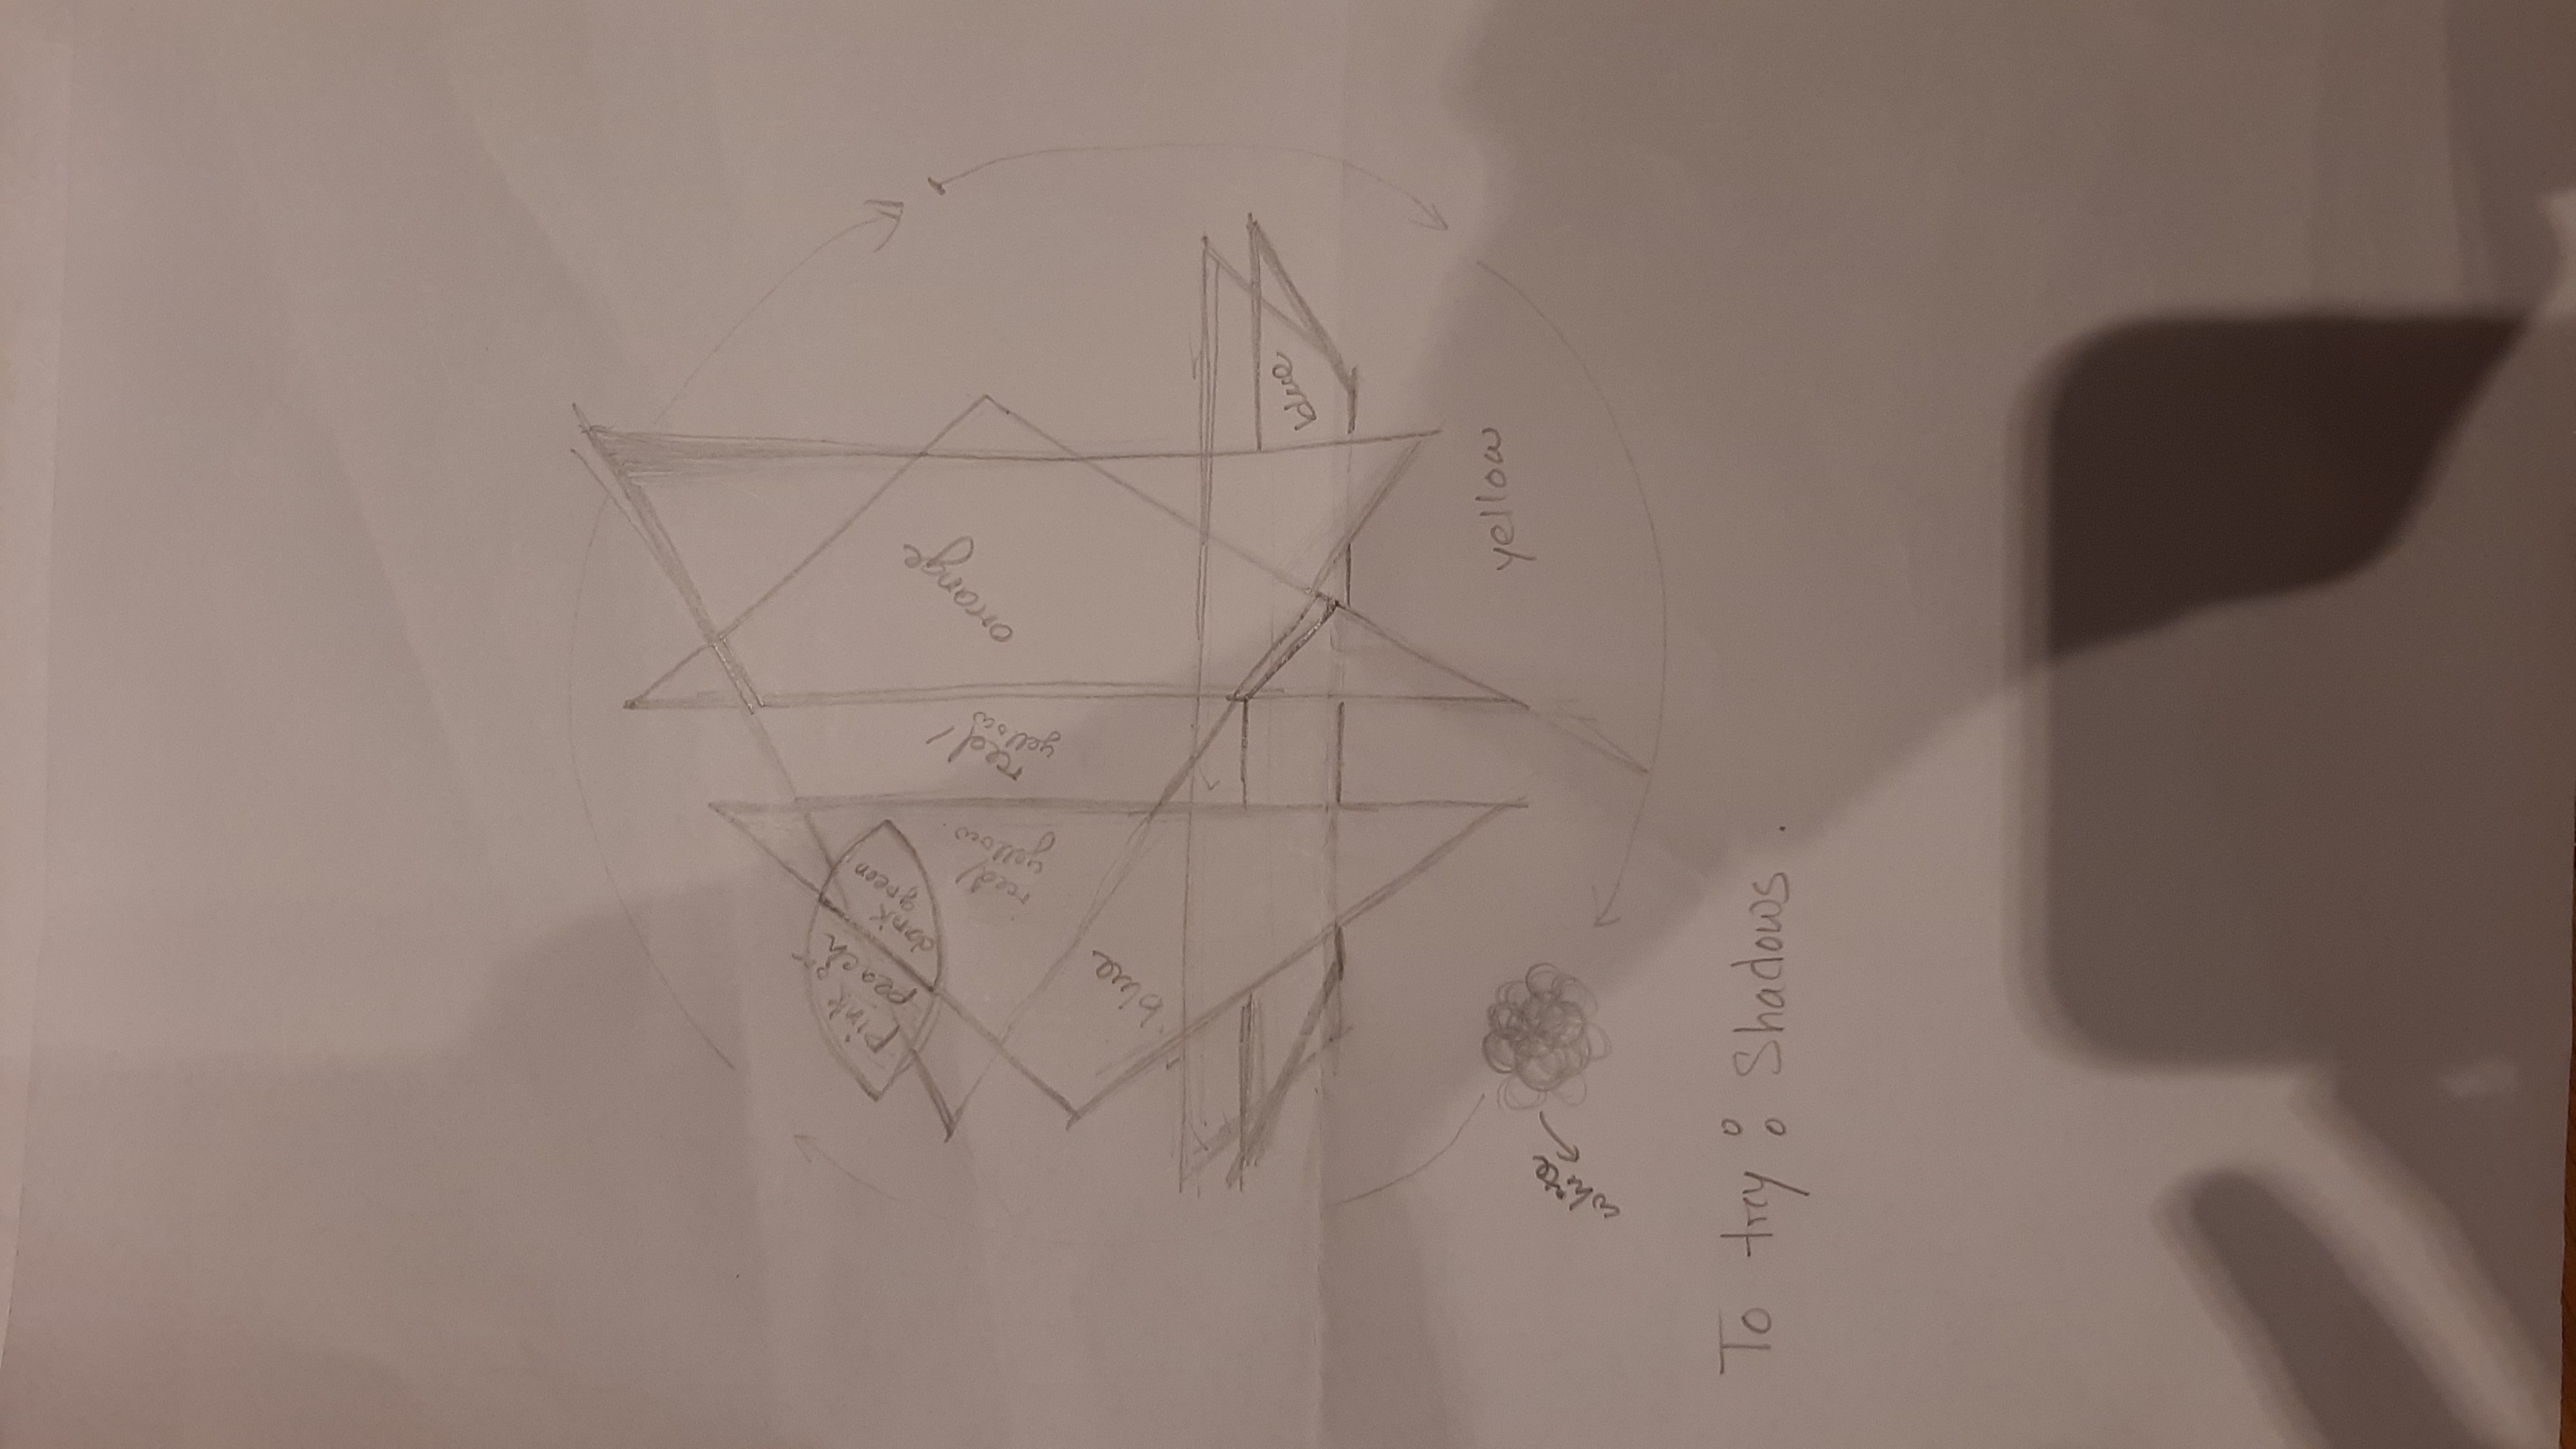 pink or
peach
dark
green
red/
yellow.
red/
yellow
orange
blue
blue
yellow
white
To try : Shadows .